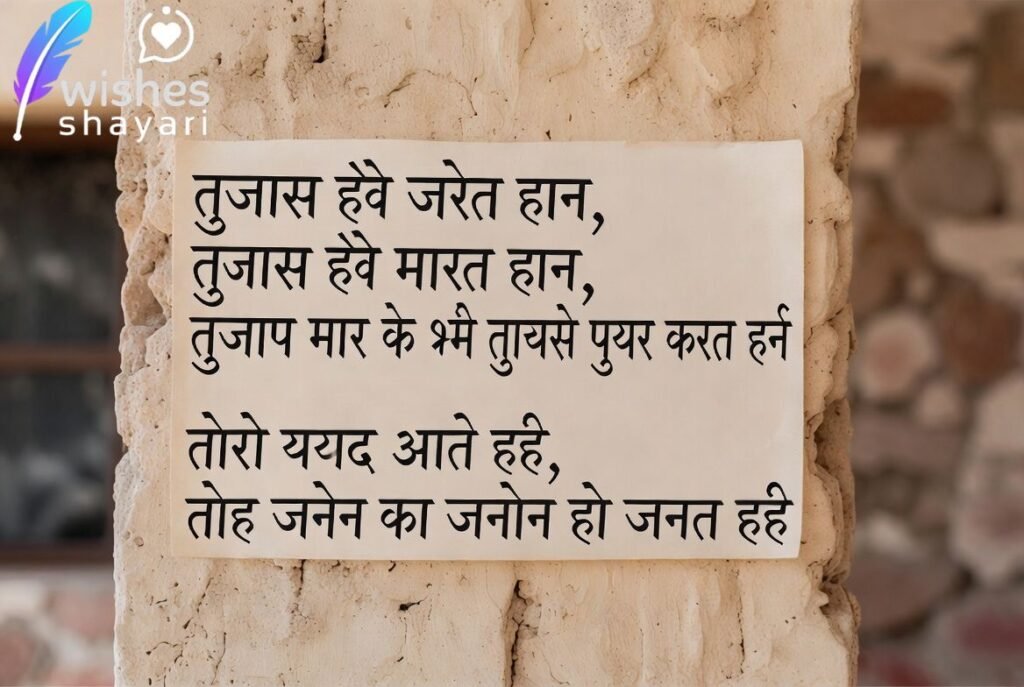 wishes
shayari
तुजास हेवे जरेत हान,
तुजास हेवे मारत हान,
तुजाप मार के भ्मी तुायसे पुयर करत हर्न
तोरो ययद आते हही,
तोह जनेन का जनोन हो जनत हही